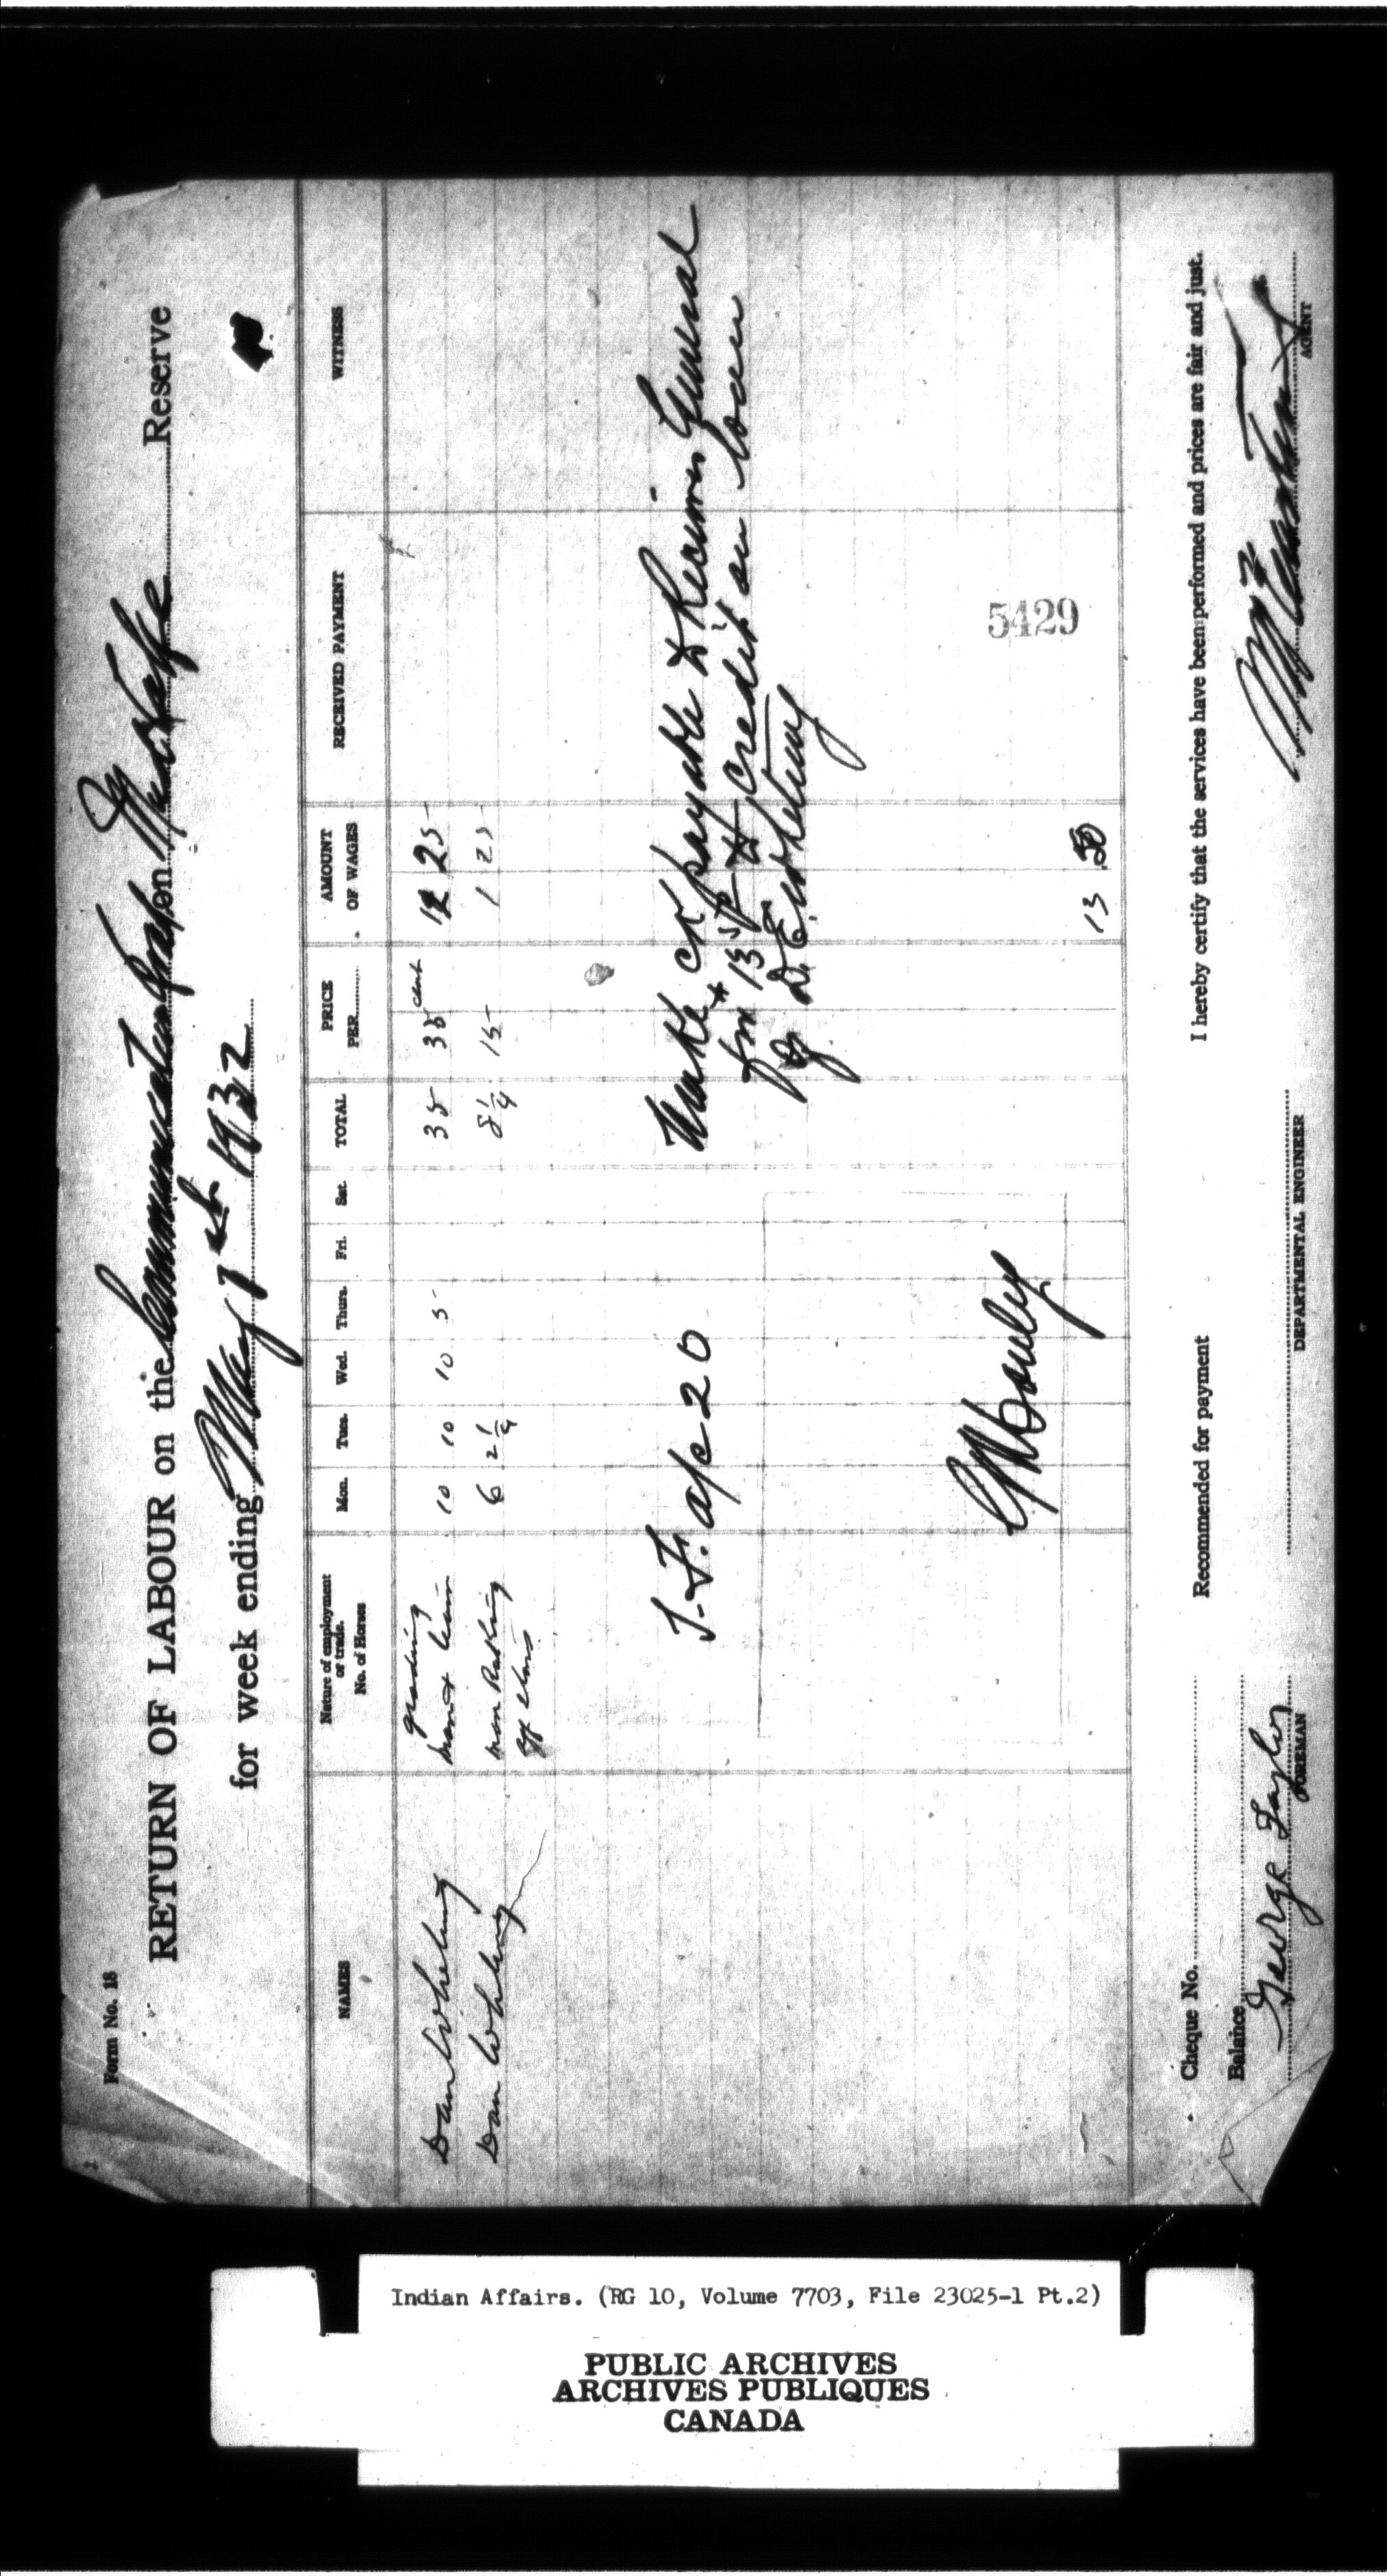 Form No. 18
RETURN OF LABOUR on the Communication Road on Metlakatla Reserve
for week ending May 7th 1932
NAMES Nature of employment or trade. No. of Horses Mon. Tues. Wed. Thurs. Fri. Sat. TOTAL PRICE PER AMOUNT OF WAGES RECEIVED PAYMENT WITNESS
grading
Dan man & team 10 10 10 5 35 35 cent 12 25
Dan man Raking 6 2 1/4 8 1/4 15 1 25
off
Make ck payable to Receiver General
for 13 50 to credit on loan
T.F. a/c 20
5429
13 50
Cheque No. Recommended for payment I hereby certify that the services have been performed and prices are fair and just.
Balance
George Taylor
FOREMAN DEPARTMENTAL ENGINEER AGENT
Indian Affairs. (RG 10, Volume 7703, File 23025-1 Pt.2)
PUBLIC ARCHIVES
ARCHIVES PUBLIQUES
CANADA